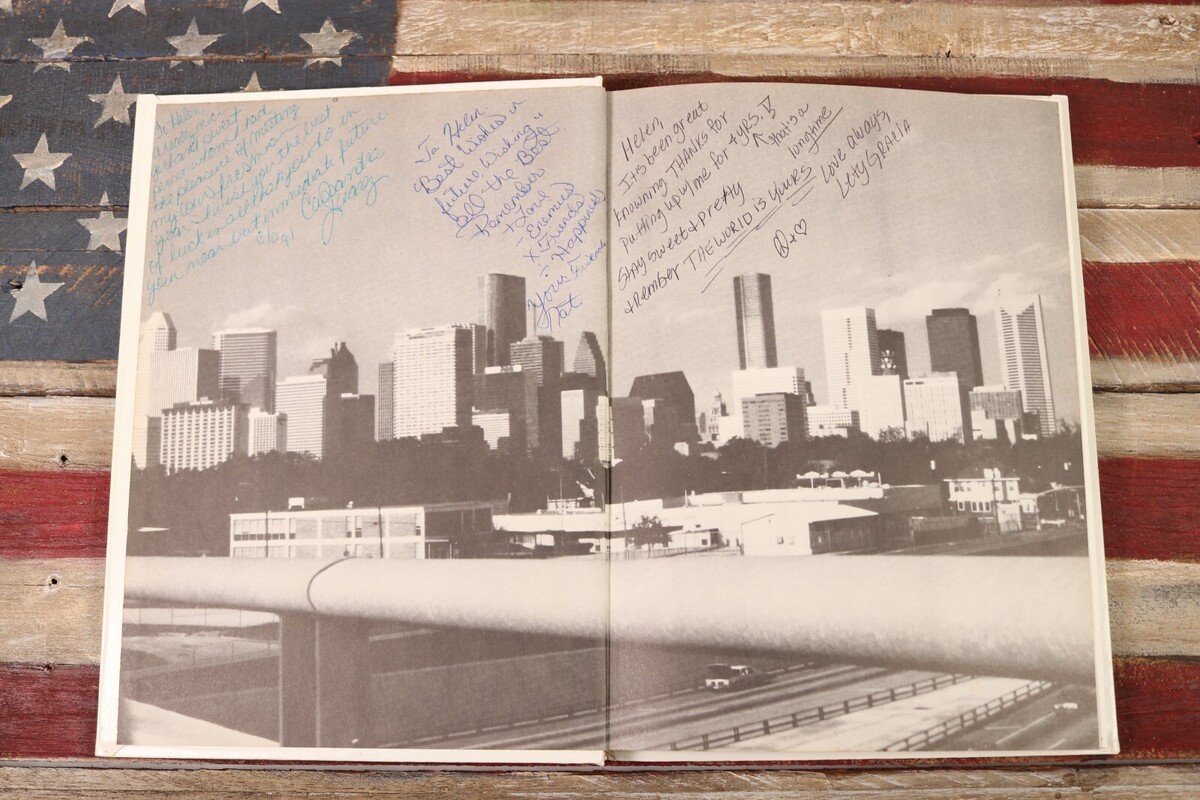 To Helen,
a really nice
girl and sweet
person whom I had
the pleasure of meeting
my last freshman
year. I wish you the best
of luck in all that you do in
your near but immediate future
To Helen.
Best Wishes in
future. Wishing u
All the Best
Remember
+ Love
- Enemies
x Friends
÷ Happiness
Your Friend
Nat
Helen,
It's been great
knowing THANKS for
putting up w/me for 4 yrs.!!
that's a
longtime
Stay sweet + pretty
+ remember THE WORLD IS YOURS
Love always,
Lety GRACIA